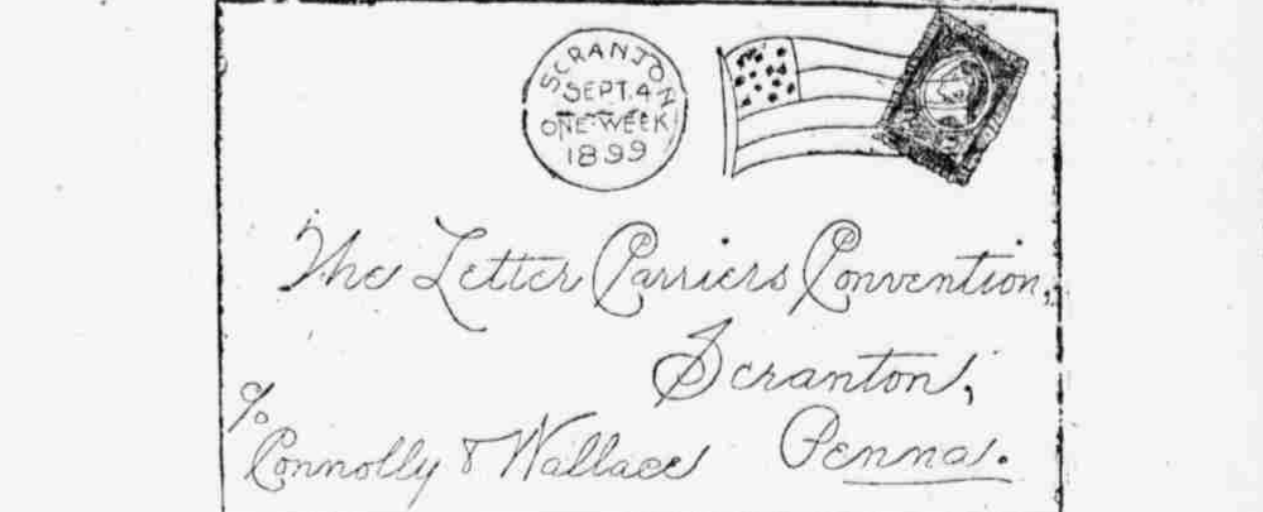 SCRANTON
SEPT. 4
ONE WEEK
1899
The Letter Carriers Convention,
Scranton,
%
Connolly & Wallace Penna.